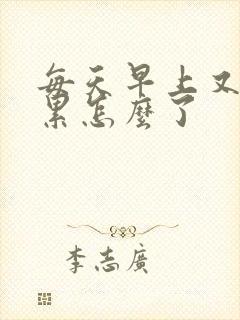 每天早上又
累怎麼了
李志廣